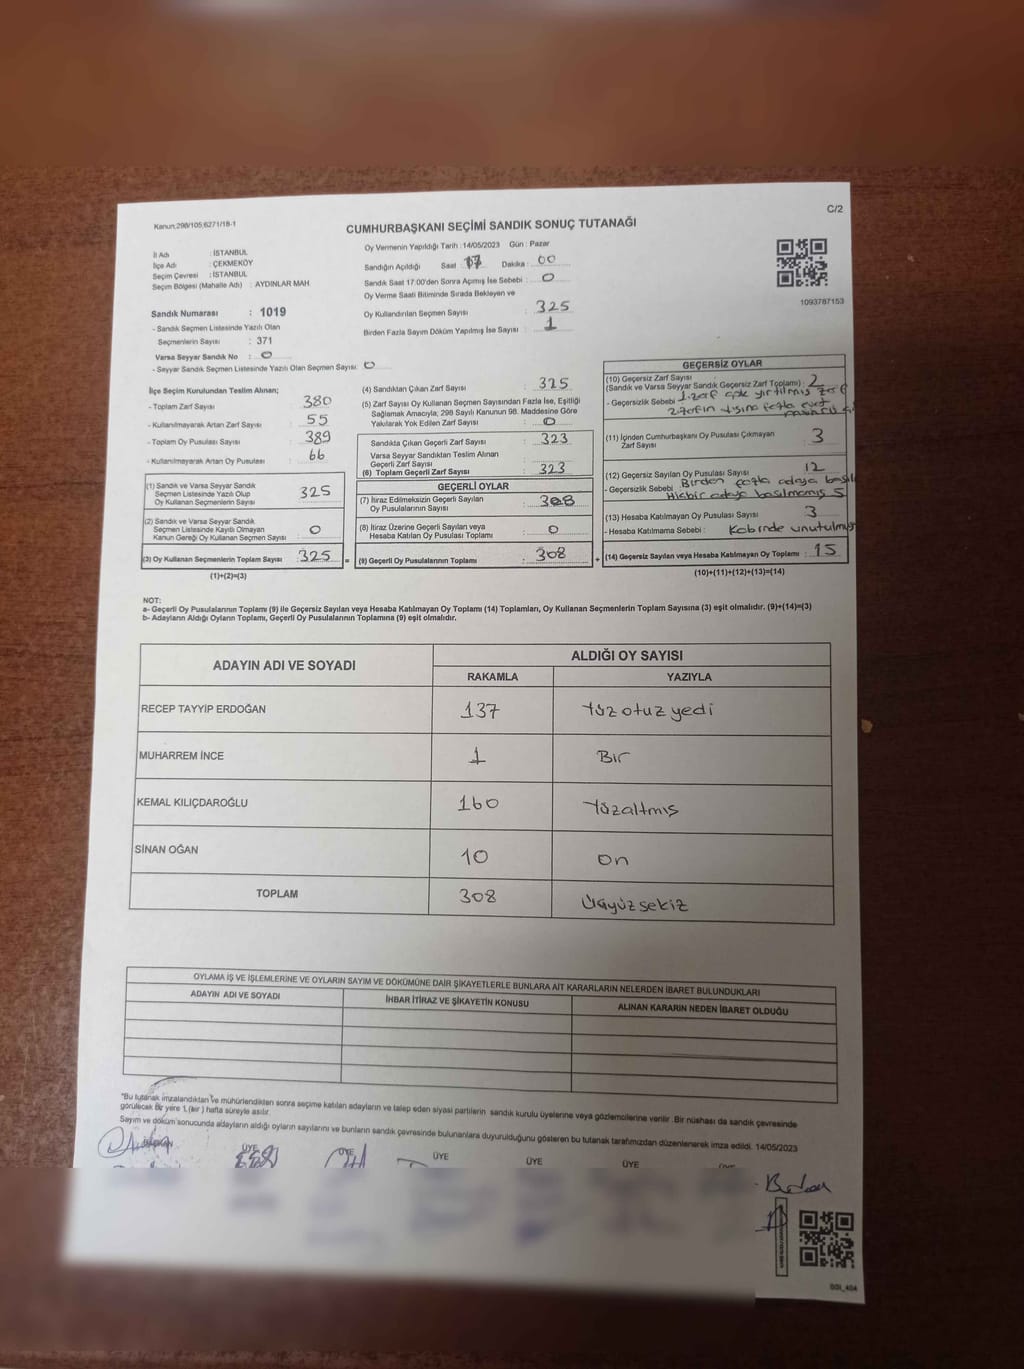 C/2
Kanun:298/105;6271/18-1
CUMHURBAŞKANI SEÇİMİ SANDIK SONUÇ TUTANAĞI
İl Adı : İSTANBUL
İlçe Adı : ÇEKMEKÖY
Seçim Çevresi : İSTANBUL
Seçim Bölgesi (Mahalle Adı) : AYDINLAR MAH
Oy Vermenin Yapıldığı Tarih : 14/05/2023 Gün : Pazar
Sandığın Açıldığı Saat : 17 Dakika : 00
Sandık Saat 17:00'den Sonra Açımış İse Sebebi : 0
Oy Verme Saati Bitiminde Sırada Bekleyen ve
Oy Kullandırılan Seçmen Sayısı : 325
Birden Fazla Sayım Döküm Yapılmış İse Sayısı : 1
1093787153
Sandık Numarası : 1019
- Sandık Seçmen Listesinde Yazılı Olan
Seçmenlerin Sayısı : 371
Varsa Seyyar Sandık No : 0
- Seyyar Sandık Seçmen Listesinde Yazılı Olan Seçmen Sayısı: 0
İlçe Seçim Kurulundan Teslim Alınan;
- Toplam Zarf Sayısı : 380
- Kullanılmayarak Artan Zarf Sayısı : 55
- Toplam Oy Pusulası Sayısı : 389
- Kullanılmayarak Artan Oy Pusulası : 66
(1) Sandık ve Varsa Seyyar Sandık
Seçmen Listesinde Yazılı Olup
Oy Kullanan Seçmenlerin Sayısı : 325
(2) Sandık ve Varsa Seyyar Sandık
Seçmen Listesinde Kayıtlı Olmayan
Kanun Gereği Oy Kullanan Seçmen Sayısı : 0
(3) Oy Kullanan Seçmenlerin Toplam Sayısı : 325 =
(1)+(2)=(3)
(4) Sandıktan Çıkan Zarf Sayısı : 325
(5) Zarf Sayısı Oy Kullanan Seçmen Sayısından Fazla İse, Eşitliği
Sağlamak Amacıyla, 298 Sayılı Kanunun 98. Maddesine Göre
Yakılarak Yok Edilen Zarf Sayısı : 0
Sandıkta Çıkan Geçerli Zarf Sayısı : 323
Varsa Seyyar Sandıktan Teslim Alınan
Geçerli Zarf Sayısı
(6) Toplam Geçerli Zarf Sayısı : 323
GEÇERLİ OYLAR
(7) İtiraz Edilmeksizin Geçerli Sayılan
Oy Pusulalarının Sayısı : 308
(8) İtiraz Üzerine Geçerli Sayılan veya
Hesaba Katılan Oy Pusulası Toplamı : 0
(9) Geçerli Oy Pusulalarının Toplamı : 308 +
GEÇERSİZ OYLAR
(10) Geçersiz Zarf Sayısı
(Sandık ve Varsa Seyyar Sandık Geçersiz Zarf Toplamı) : 2
- Geçersizlik Sebebi 1.zarf çok yırtılmış zarf
2.zarfın dışına fazla evet
(11) İçinden Cumhurbaşkanı Oy Pusulası Çıkmayan
Zarf Sayısı : 3
(12) Geçersiz Sayılan Oy Pusulası Sayısı : 12
- Geçersizlik Sebebi Birden fazla adaya
Hiçbir adaya basılmamış 5
(13) Hesaba Katılmayan Oy Pusulası Sayısı : 3
- Hesaba Katılmama Sebebi : Kabinde unutulmuş
(14) Geçersiz Sayılan veya Hesaba Katılmayan Oy Toplamı : 15
(10)+(11)+(12)+(13)=(14)
NOT:
a- Geçerli Oy Pusulalarının Toplamı (9) ile Geçersiz Sayılan veya Hesaba Katılmayan Oy Toplamı (14) Toplamları, Oy Kullanan Seçmenlerin Toplam Sayısına (3) eşit olmalıdır. (9)+(14)=(3)
b- Adayların Aldığı Oyların Toplamı, Geçerli Oy Pusulalarının Toplamına (9) eşit olmalıdır.
ADAYIN ADI VE SOYADI ALDIĞI OY SAYISI
RAKAMLA YAZIYLA
RECEP TAYYİP ERDOĞAN 137 Yüzotuzyedi
MUHARREM İNCE 1 Bir
KEMAL KILIÇDAROĞLU 160 Yüzaltmış
SİNAN OĞAN 10 On
TOPLAM 308 Üçyüzsekiz
OYLAMA İŞ VE İŞLEMLERİNE VE OYLARIN SAYIM VE DÖKÜMÜNE DAİR ŞİKAYETLERLE BUNLARA AİT KARARLARIN NELERDEN İBARET BULUNDUKLARI
ADAYIN ADI VE SOYADI İHBAR İTİRAZ VE ŞİKAYETİN KONUSU ALINAN KARARIN NEDEN İBARET OLDUĞU
"Bu tutanak imzalandıktan ve mühürlendikten sonra seçime katılan adayların ve talep eden siyasi partilerin sandık kurulu üyelerine veya gözlemcilerine verilir. Bir nüshası da sandık çevresinde
görülecek bir yere 1 (bir) hafta süreyle asılır.
Sayım ve döküm sonucunda adayların aldığı oyların sayılarını ve bunların sandık çevresinde bulunanlara duyurulduğunu gösteren bu tutanak tarafımızdan düzenlenerek imza edildi. 14/05/2023
ÜYE ÜYE ÜYE ÜYE ÜYE